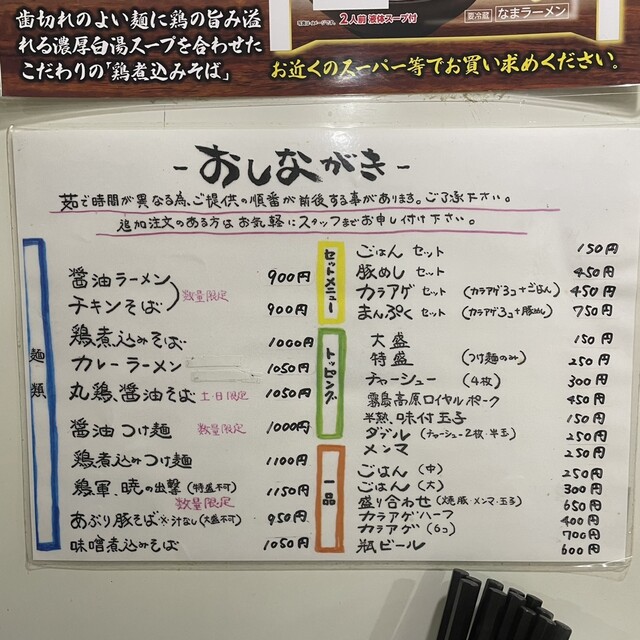 歯切れのよい麺に鶏の旨み溢
れる濃厚白湯スープを合わせた
こだわりの「鶏煮込みそば」
2人前 液体スープ付
要冷蔵 なまラーメン
お近くのスーパー等でお買い求めください。
- おしながき -
茹で時間が異なる為、ご提供の順番が前後する事があります。ご了承下さい。
追加注文のある方はお気軽にスタッフまでお申し付け下さい。
麺類
醤油ラーメン 900円
チキンそば 900円
数量限定
鶏煮込みそば 1000円
カレーラーメン 1050円
丸鶏醤油そば 土・日限定 1050円
醤油つけ麺 数量限定 1000円
鶏煮込みつけ麺 1100円
鶏軍、暁の出撃(特盛不可) 1150円
数量限定
あぶり豚そば ※汁なし(大盛不可) 950円
味噌煮込みそば 1050円
セットメニュー
ごはん セット 150円
豚めし セット 450円
カラアゲ セット (カラアゲ3コ+ごはん) 450円
まんぷく セット (カラアゲ3コ+豚めし) 750円
トッピング
大盛 150円
特盛 (つけ麺のみ) 250円
チャーシュー (4枚) 300円
霧島高原ロイヤルポーク 450円
半熟 味付玉子 150円
ダブル (チャーシュー2枚・半玉) 250円
メンマ 250円
一品
ごはん (中) 250円
ごはん (大) 300円
盛り合わせ (焼豚・メンマ・玉子) 650円
カラアゲハーフ 400円
カラアゲ (6コ) 700円
瓶ビール 600円